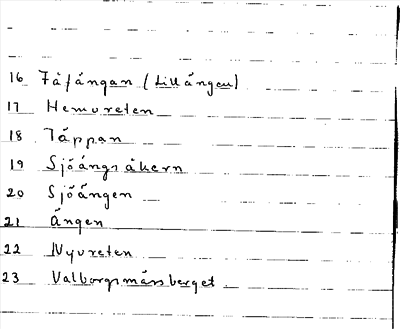 16 Fåfängan (Lillängen)
17 Hemvreten
18 Täppan
19 Sjöängsåkern
20 Sjöängen
21 Ängen
22 Nyvreten
23 Valborgsmässberget